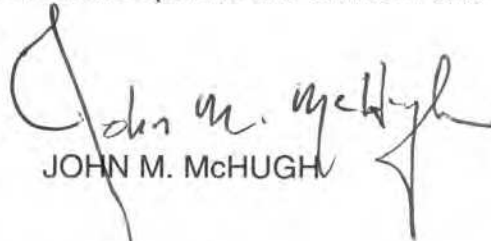 John M. McHugh
JOHN M. McHUGH